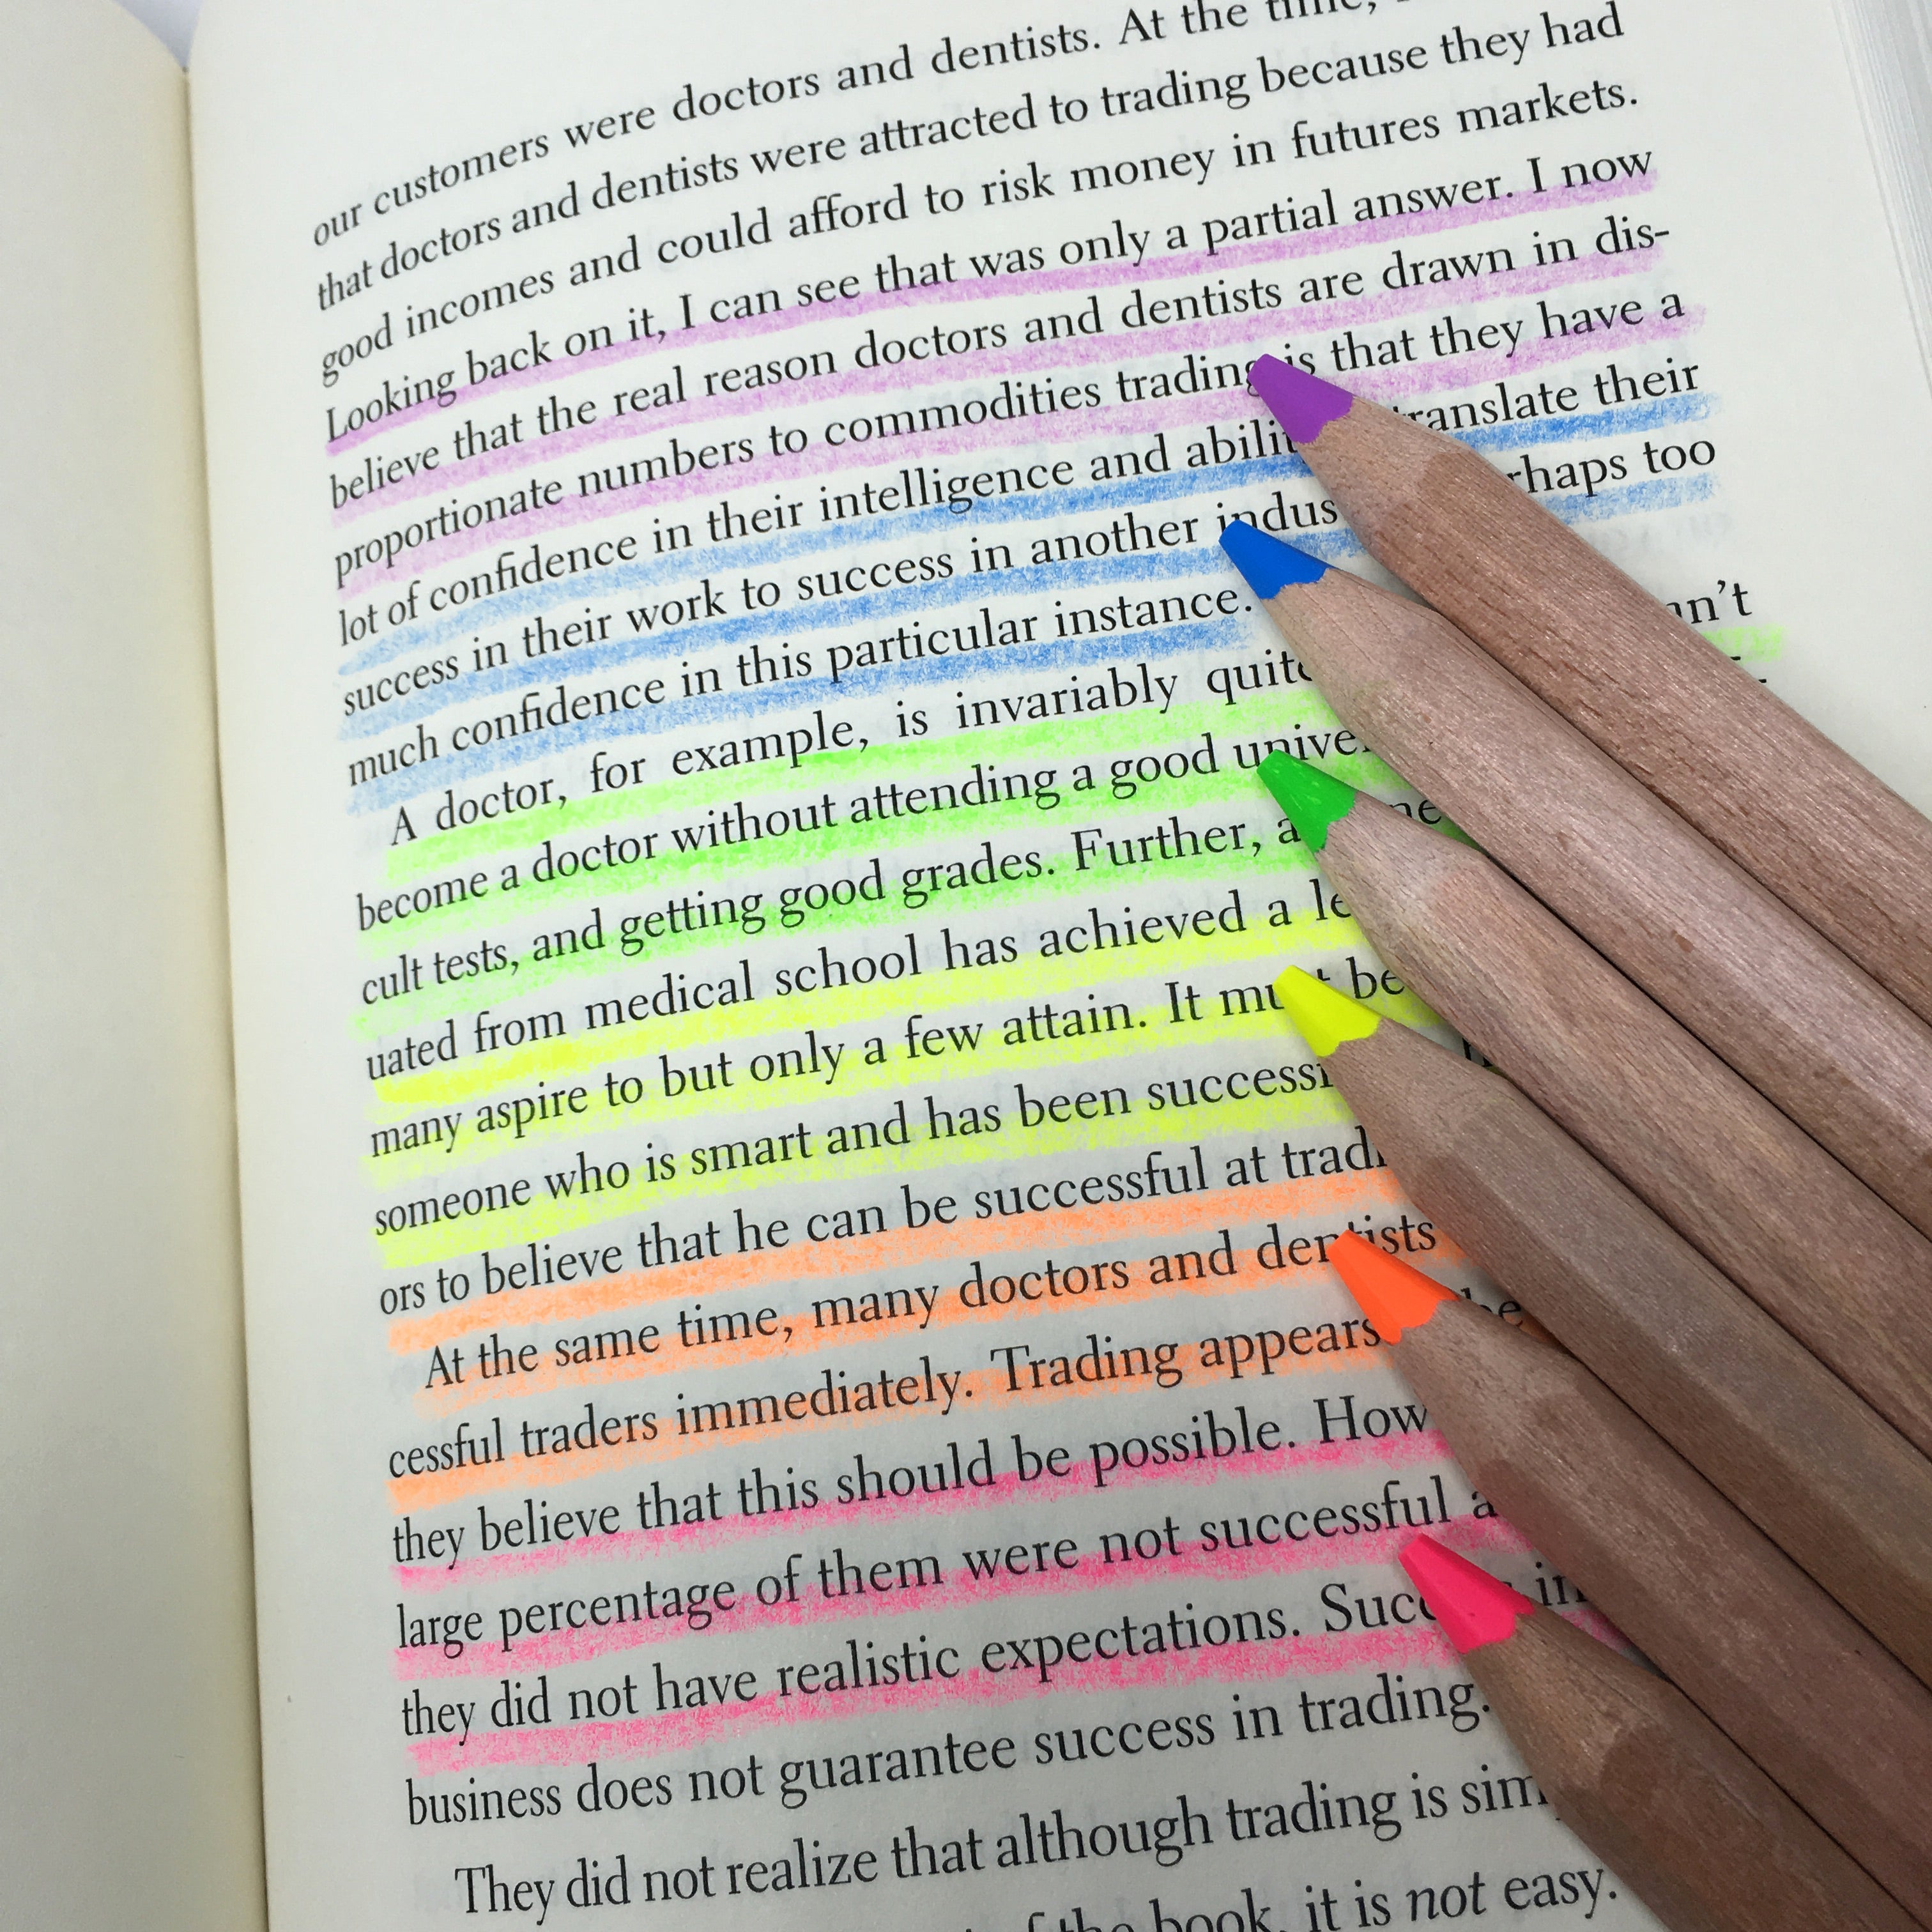 our customers were doctors and dentists. At the time,
that doctors and dentists were attracted to trading because they had
good incomes and could afford to risk money in futures markets.
Looking back on it, I can see that was only a partial answer. I now
believe that the real reason doctors and dentists are drawn in dis-
proportionate numbers to commodities trading is that they have a
lot of confidence in their intelligence and translate their
success in their work to success in another too
much confidence in this particular instance.
A doctor, for example, is invariably
become a doctor without attending a good
cult tests, and getting good grades. Further,
uated from medical school has achieved a
many aspire to but only a few attain. It be
someone who is smart and has been
ors to believe that he can be successful at
At the same time, many doctors and dentists
cessful traders immediately. Trading appears be
they believe that this should be possible.
large percentage of them were not successful
they did not have realistic expectations.
business does not guarantee success in trading.
They did not realize that although trading is
the book, it is not easy.